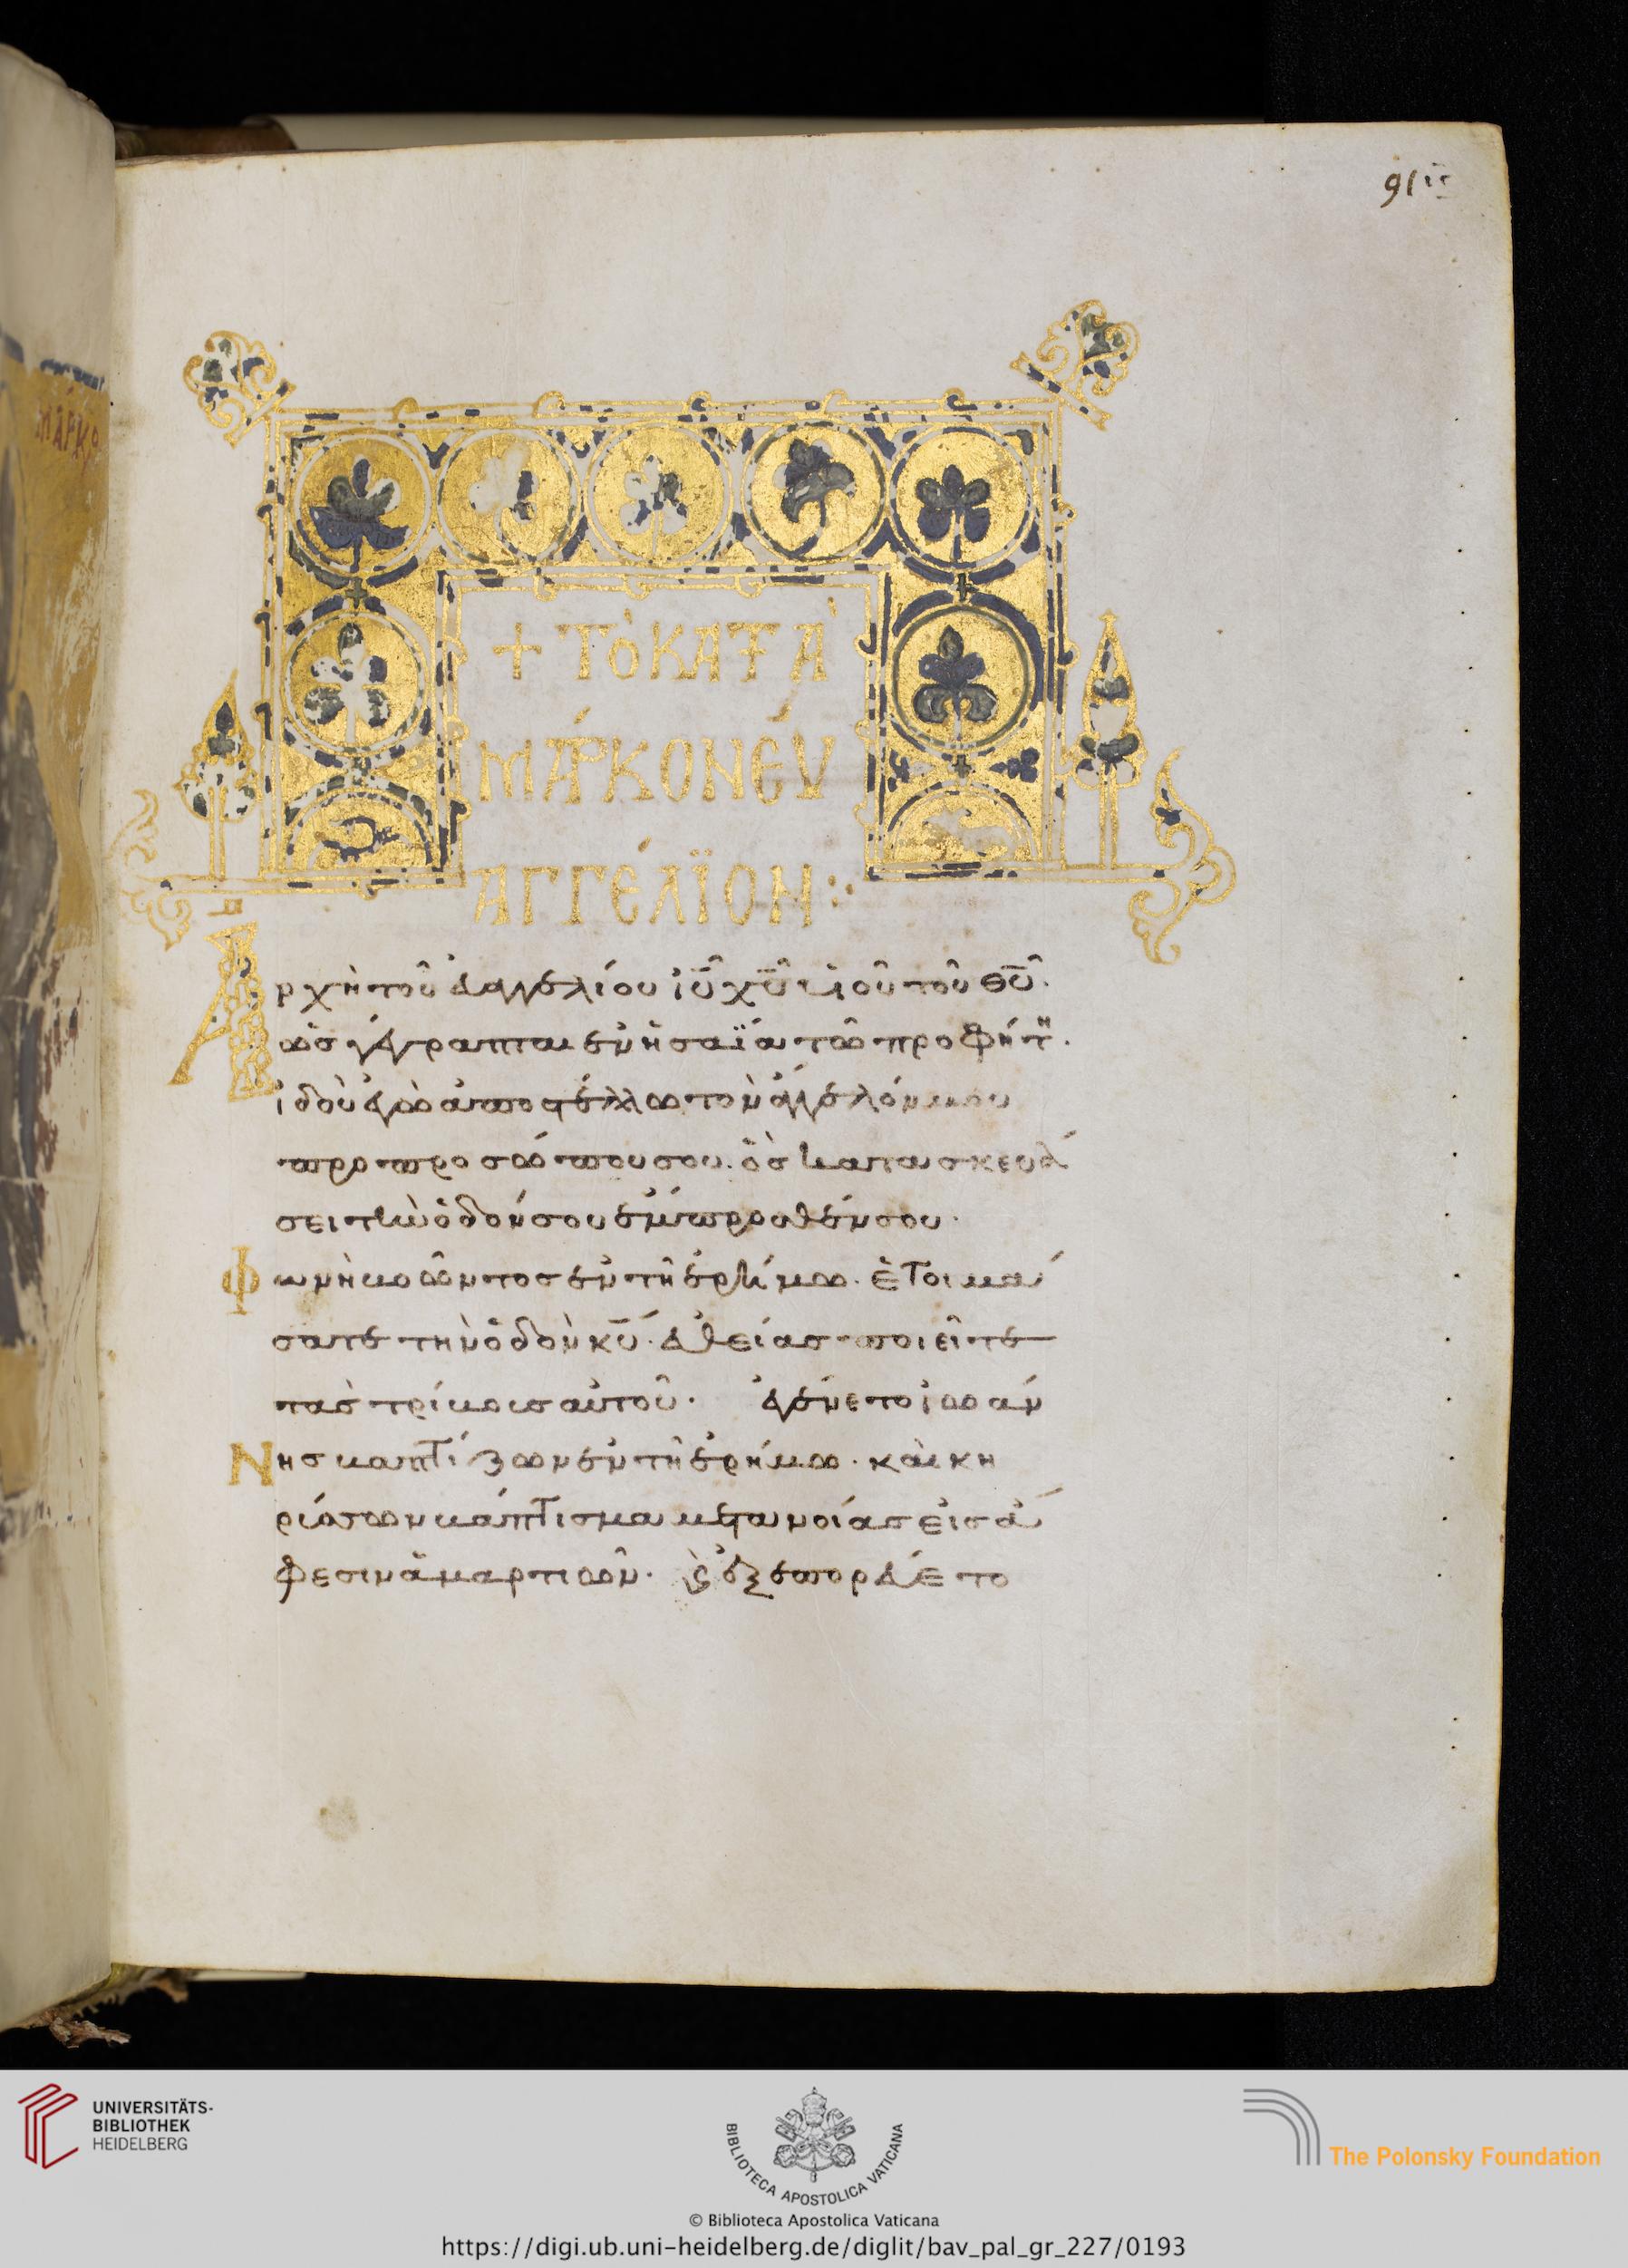 91
ΜΑΡΚΟ
+ ΤῸ ΚΑΤᾺ
ΜΆΡΚΟΝ ΕΥ̓
ΑΓΓΈΛΪΟΝ:·
Ἀρχὴ τοῦ εὐαγγελίου ἰῦ χῦ υἱοῦ τοῦ θῦ.
ὡς γέγραπται ἐν ἠσαΐα τῶ προφήτη.
ἰδοὺ ἐγὼ ἀποστέλλω τὸν ἄγγελόν μου
προ προσώπου σου. ὃς κατασκευά
σει τὴν ὁδόν σου ἔμπροσθέν σου.
Φωνὴ βοῶντος ἐν τῆ ἐρήμω. ἑτοιμά
σατε τὴν ὁδὸν κυ. εὐθείας ποιεῖτε
τὰς τρίβους αὐτοῦ. ἐγένετο ἰωάν
Νης βαπτίζων ἐν τῆ ἐρήμω. καὶ κη
ρύσσων βάπτισμα μετανοίας εἰς ἄ
φεσιν ἁμαρτιῶν. ϗ ἐξεπορεύετο
UNIVERSITÄTS-
BIBLIOTHEK
HEIDELBERG
BIBLIOTECA APOSTOLICA VATICANA
The Polonsky Foundation
© Biblioteca Apostolica Vaticana
https://digi.ub.uni-heidelberg.de/diglit/bav_pal_gr_227/0193